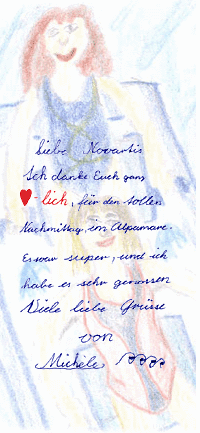 Liebe Novartis
Ich danke Euch ganz
♥-lich, für den tollen
Nachmittag im Alpamare.
Es war super, und ich
habe es sehr genossen
Viele liebe Grüsse
von
Michèle